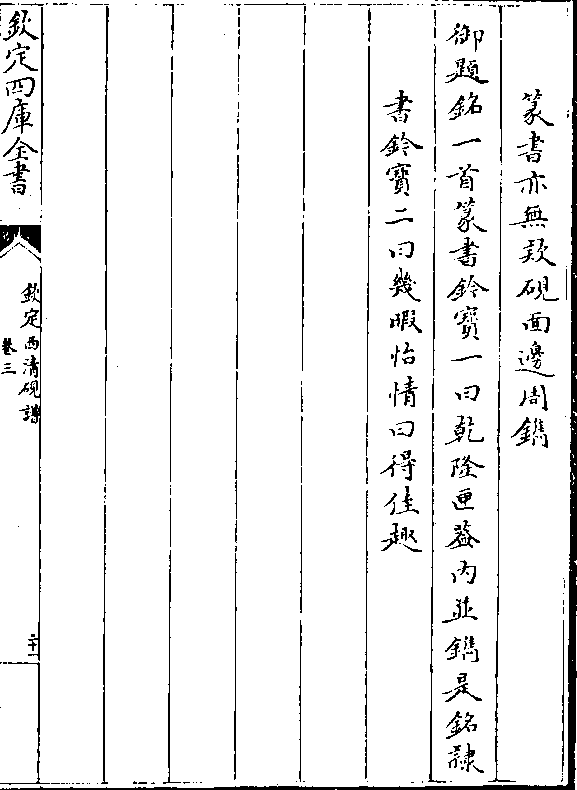 篆書亦無款硯面邊周鐫
御題銘一首篆書鈐寶一曰乾隆匣葢内並鐫是銘隷
書鈐寶二曰幾暇怡情曰得佳趣
欽定四庫全書
欽定西清硯譜
卷三
二十一